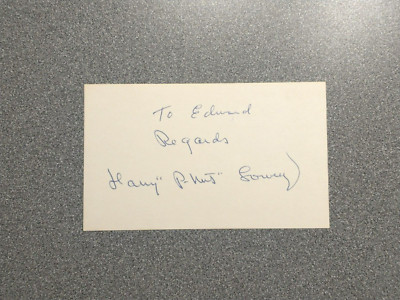 To Edward
Regards
Harry "P.Nuts" Lowrey